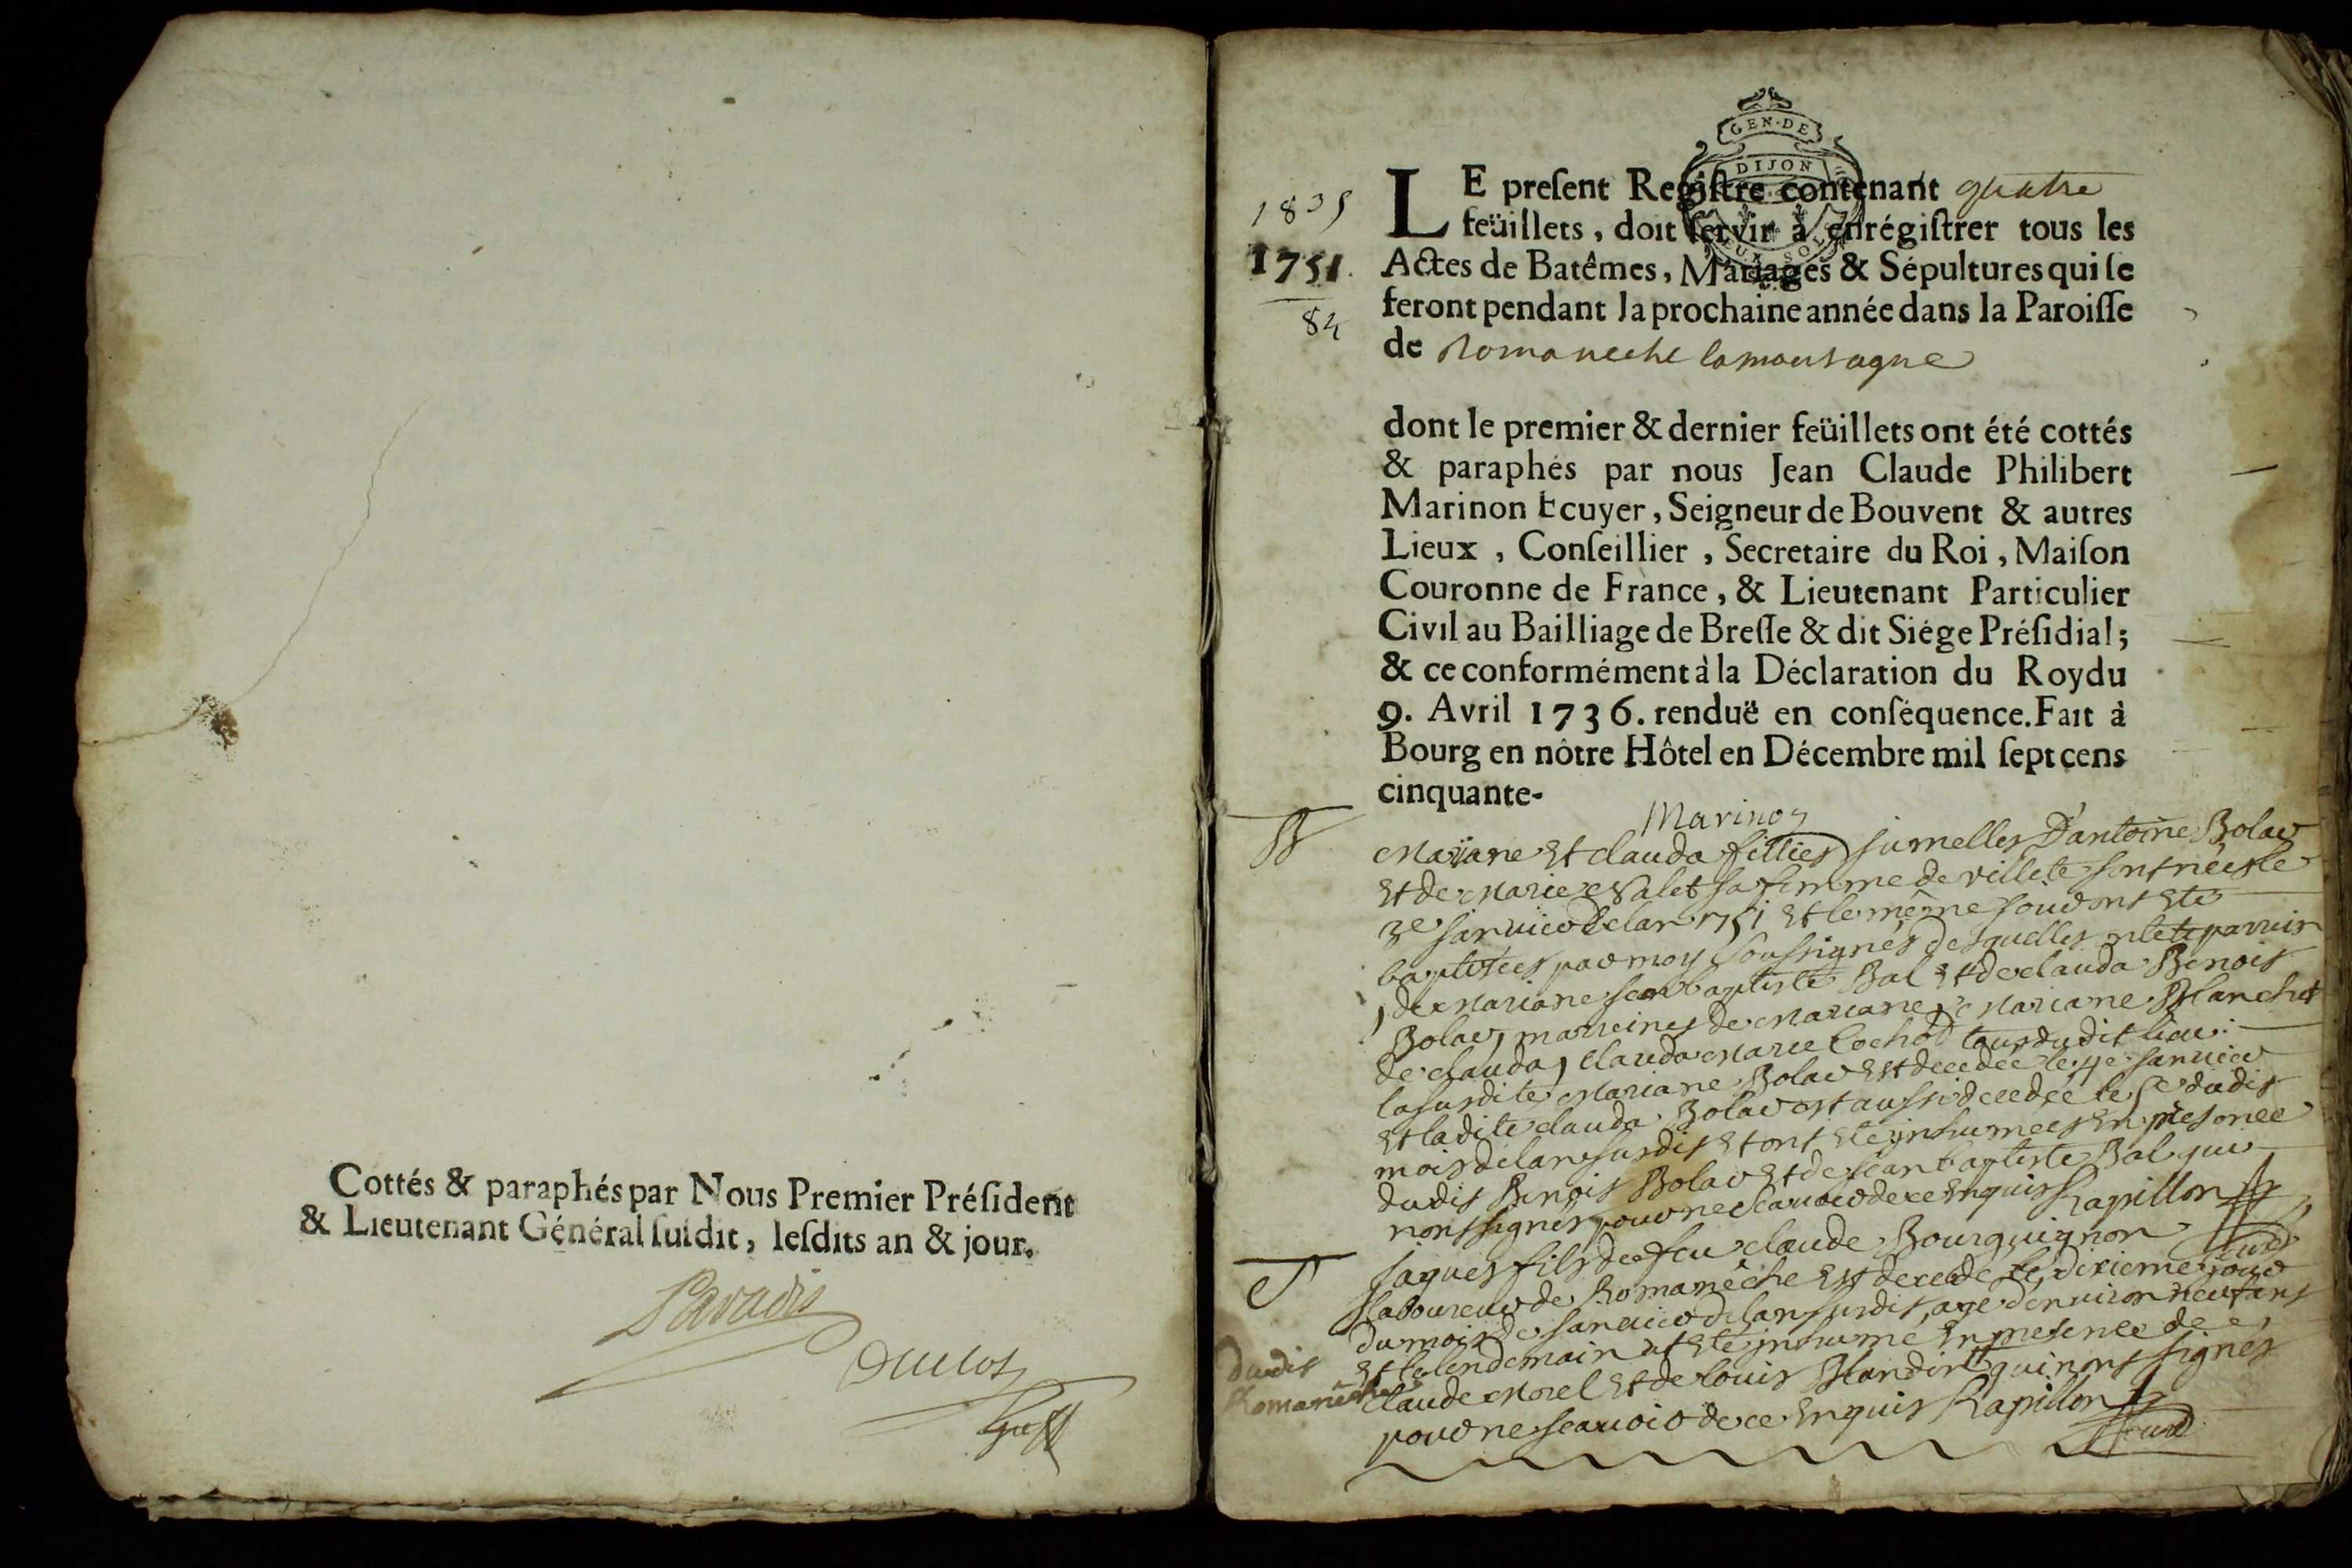 Cottés & paraphés par Nous Premier Préſident
& Lieutenant Général ſuſdit, leſdits an & jour.
Paradis
Duclos
Greff
GEN·DE
DIJON
1835
1751.
84
LE preſent Regiſtre contenant quatre
feüillets, doit ſervir à enrégiſtrer tous les
Actes de Batêmes, Mariages & Sépultures qui ſe
feront pendant la prochaine année dans la Paroiſſe
de Romaneche lamontagne
dont le premier & dernier feüillets ont été cottés
& paraphés par nous Jean Claude Philibert
Marinon Ecuyer, Seigneur de Bouvent & autres
Lieux, Conſeillier, Secretaire du Roi, Maiſon
Couronne de France, & Lieutenant Particulier
Civil au Bailliage de Breſſe & dit Siége Préſidial;
& ce conformément à la Déclaration du Roy du
9. Avril 1736. renduë en conſéquence. Fait à
Bourg en nôtre Hôtel en Décembre mil ſept cens
cinquante-
Marinon
B
Mariane et clauda filles jumelles D'antoine Bolar
et de Marie Valet sa femme de villete sont neés le
3e januier de lan 1751 et le même jour ont eté
baptiseés par moy soussignés desquelles parrein
de Mariane jean baptiste Bal et de clauda Benois
Bolar, marreines de Mariane Mariane Blanchet
de clauda, clauda Marie Cochod tous dudit lieu.
la susdite Mariane Bolar est decedeé le 4e januier
et ladite clauda Bolar est aussi decedeé le 5e dudit
mois de lan susdit et ont eté inhumeés en presence
dudit Benois Bolar et de jean baptiste Bal qui
nont signés pour ne scauoir de ce enquis Rapillon
curé
S
jaques fils de feu claude Bourguignon
laboureur de Romanêche est decedé le dixieme jour
du mois de januier de lan susdit, agé denuiron neuf ans
et le lendemain at eté inhumé en presence de
claude Morel et de louis Blandin qui nont signés
dudit
Romanêche
pour ne scauoir de ce enquis Rapillon
curé